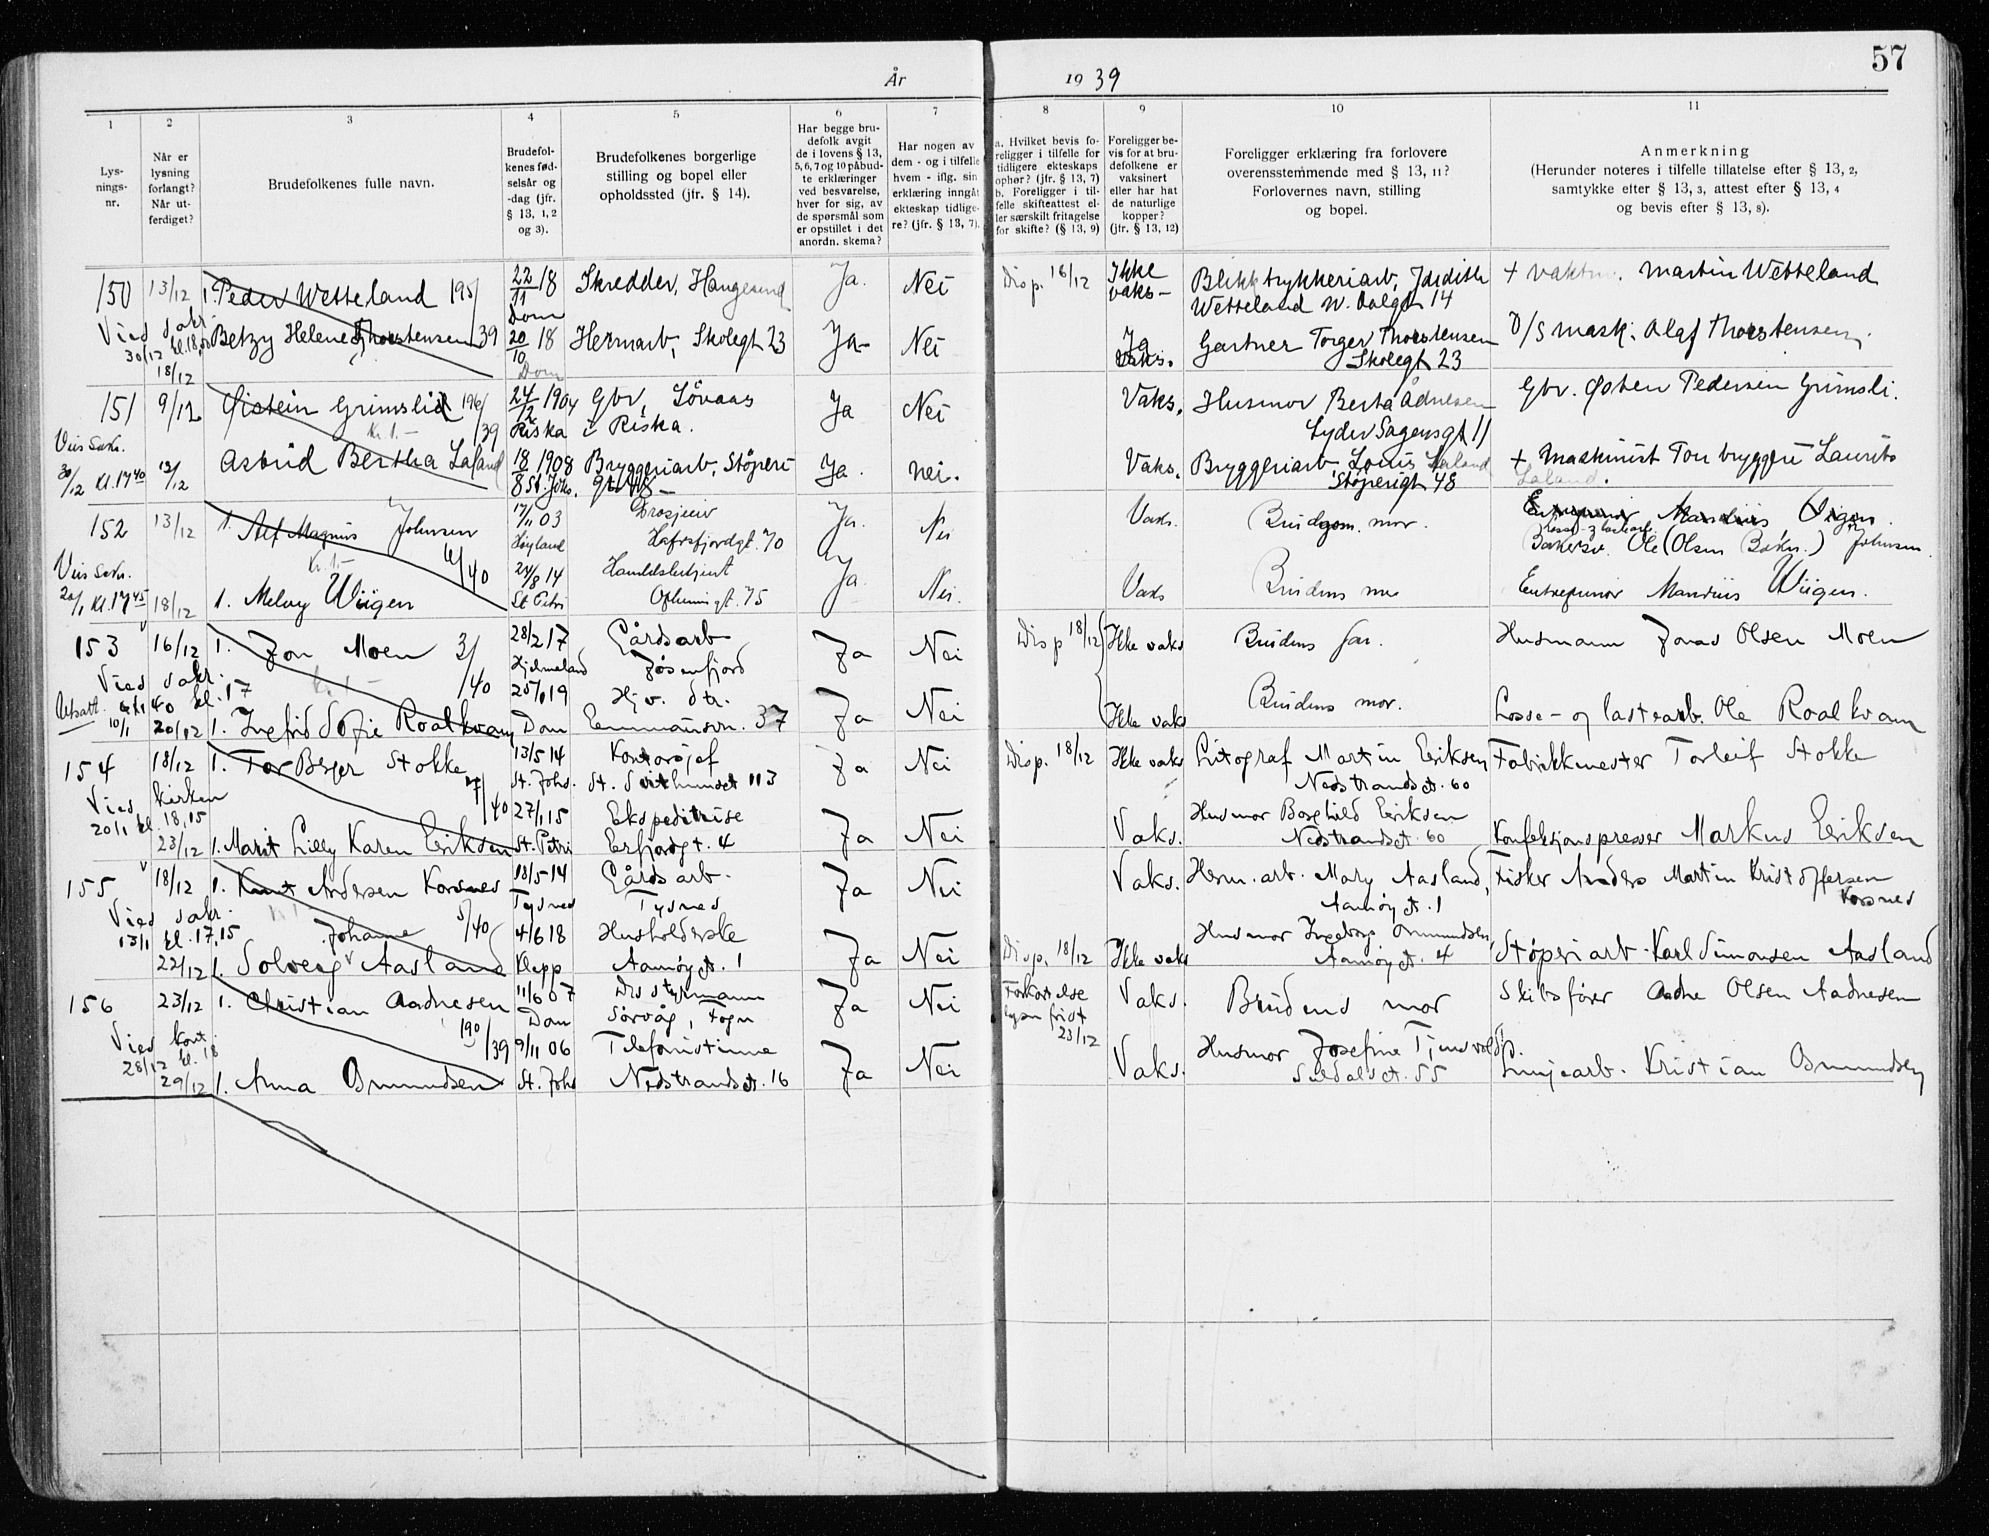 57
År 1939
1 2 3 4 5 6 7 8 9 10 11
Lysnings-
nr.
Når er
lysning
forlangt?
Når ut-
ferdiget?
Brudefolkenes fulle navn.
Brudefol-
kenes fød-
selsår og
-dag (jfr.
§ 13, 1, 2
og 3).
Brudefolkenes borgerlige
stilling og bopel eller
opholdssted (jfr. § 14).
Har begge bru-
defolk avgit
de i lovens § 13,
5, 6, 7 og 10 påbud-
te erklæringer
ved besvarelse,
hver for sig, av
de spørsmål som
er opstillet i det
anordn. skema?
Har nogen av
dem - og i tilfelle
hvem - iflg. sin
erklæring inngått
ekteskap tidlige-
re? (jfr. § 13, 7).
a. Hvilket bevis fo-
religger i tilfelle for
tidligere ekteskaps
ophør? (jfr. § 13, 7)
b. Foreligger i til-
felle skifteattest el-
ler særskilt fritagelse
for skifte? (§ 13, 9)
Foreligger be-
vis for at bru-
defolkene er
vaksinert
eller har hat
de naturlige
kopper?
(jfr. § 13, 12)
Foreligger erklæring fra forlovere
overensstemmende med § 13, 11?
Forlovernes navn, stilling
og bopel.
Anmerkning
(Herunder noteres i tilfelle tillatelse efter § 13, 2,
samtykke efter § 13, 3, attest efter § 13, 4
og bevis efter § 13, 8).
150 13/12 1. Peder Wetteland 195/39 22/11 18 Dom Skredder, Haugesund Ja. Nei Disp. 16/12 Ikke vaks- Blikktrykkeriarb. Judith
Wetteland W. Dalgt 14 + Martin Wetteland
Vied sakr.
30/12 kl. 18,
18/12 Betzy Helene Thorstensen 20/10 18 Dom Hermarb, Skolegt 23 Ja- Nei Ja Vaks. Gartner Torger Thorstensen
Skolegt 23 D/S mask. Olaf Thorstensen.
151 9/12 Øistein Grimslid 196/39 24/12 1904 Riska Gbr, Lövaas
i Riska. Ja Nei Vaks. Husmor Berta Ådnesen
Lyder Sagensgt 11 Gbr. Østen Pedersen Grimsli.
Kr. 1.-
Viet Sakr.
30/12 Kl. 17 40 12/12 Astrid Bertha Laland 18/8 1908 St. Johs. Bryggeriarb, Støperi-
gt 48- Ja. Nei. Vaks. Bryggeriarb. Louis Laland
Støperigt 48 + Maskinist Tou bryggeri Laurits
Laland.
152 13/12 1. Alf Magnus Johnsen 4/40 17/11 03 Høyland Drosjeeier
Hafrsfjordgt. 70 Ja. Nei Vaks. Brudgom. mor. Entreprenør Mandius Wiigen.
Ole (Olsen Bakn.) Johnsen.
Kr. 1.-
Viet Sakr.
20/1 Kl. 17 45 18/12 1. Melvy Wiigen 24/8 14 St Petri Handelsbetjent
75 Ja. Nei. Vaks Brudens mor Entreprenør Mandius Wiigen.
153 16/12 1. Jon Moen 3/40 28/2 17 Hjelmeland Gårdsarb
Jøsenfjord Ja Nei Disp 18/12 Ikke vaks Brudens far. Husmann Jonas Olsen Moen
Vied sakr.
6/1 40 kl. 17
Utsatt. 10/1 20/12 1. Ingrid Sofie Roalkvam 25/1 19 Dom Hjv. dtr.
Emmausvn. 37 Ja Nei Ikke vaks Brudens mor. Losse- og lastearb. Ole Roalkvam
154 18/12 1. Tor Berger Stokke 7/40 13/5 14 St. Johs. Kontorsjef
St. Svithunsgt 113 Ja Nei Disp. 18/12 Ikke vaks Litograf Martin Eriksen
Nedstrandsgt. 60 Fabrikkmester Torleif Stokke
Vied kirken
20/1 kl. 18,15
23/12 1. Marit Lilly Karen Eriksen 27/1 15 St. Petri Ekspeditrise
Erfjordgt. 4 Ja Nei Vaks. Husmor Borghild Eriksen
Nedstrandsgt. 60 Konfeksjonspresser Markus Eriksen
155 18/12 1. Knut Andersen Korsnes 5/40 18/5 14 Tysnes Gårdsarb.
Tysnes Ja Nei Vaks. Herm. arb. Mary Aasland,
Aamøygt. 1 Fisker Anders Martin Kristoffersen
Korsnes
Vied sakr.
13/1 kl. 17,15
22/12 1. Solveig Johanne Aasland 4/6 18 Klepp Husholderske
Aamøygt. 1 Ja Nei Disp. 18/12 Ikke vaks Husmor Ingeborg Osmundsen,
Aamøygt. 4 Støperiarb. Karl Simonsen Aasland
156 23/12 1. Christian Aadnesen 190/39 11/6 07 Dom Dis styrmann
Sørvåg, Fogn Ja Nei Forkortelse
lysn frist
23/12 Vaks. Brudens mor Skibsfører Adne Olsen Aadnesen
Vied kont.
28/12 kl. 18
29/12 1. Anna Osmundsen 9/11 06 St. Johs Telefonistinne
Nedstrandsgt. 16 Ja Nei Vaks. Husmor Josefine
Suldalsgt. 55 Linjearb. Kristian Osmundsen